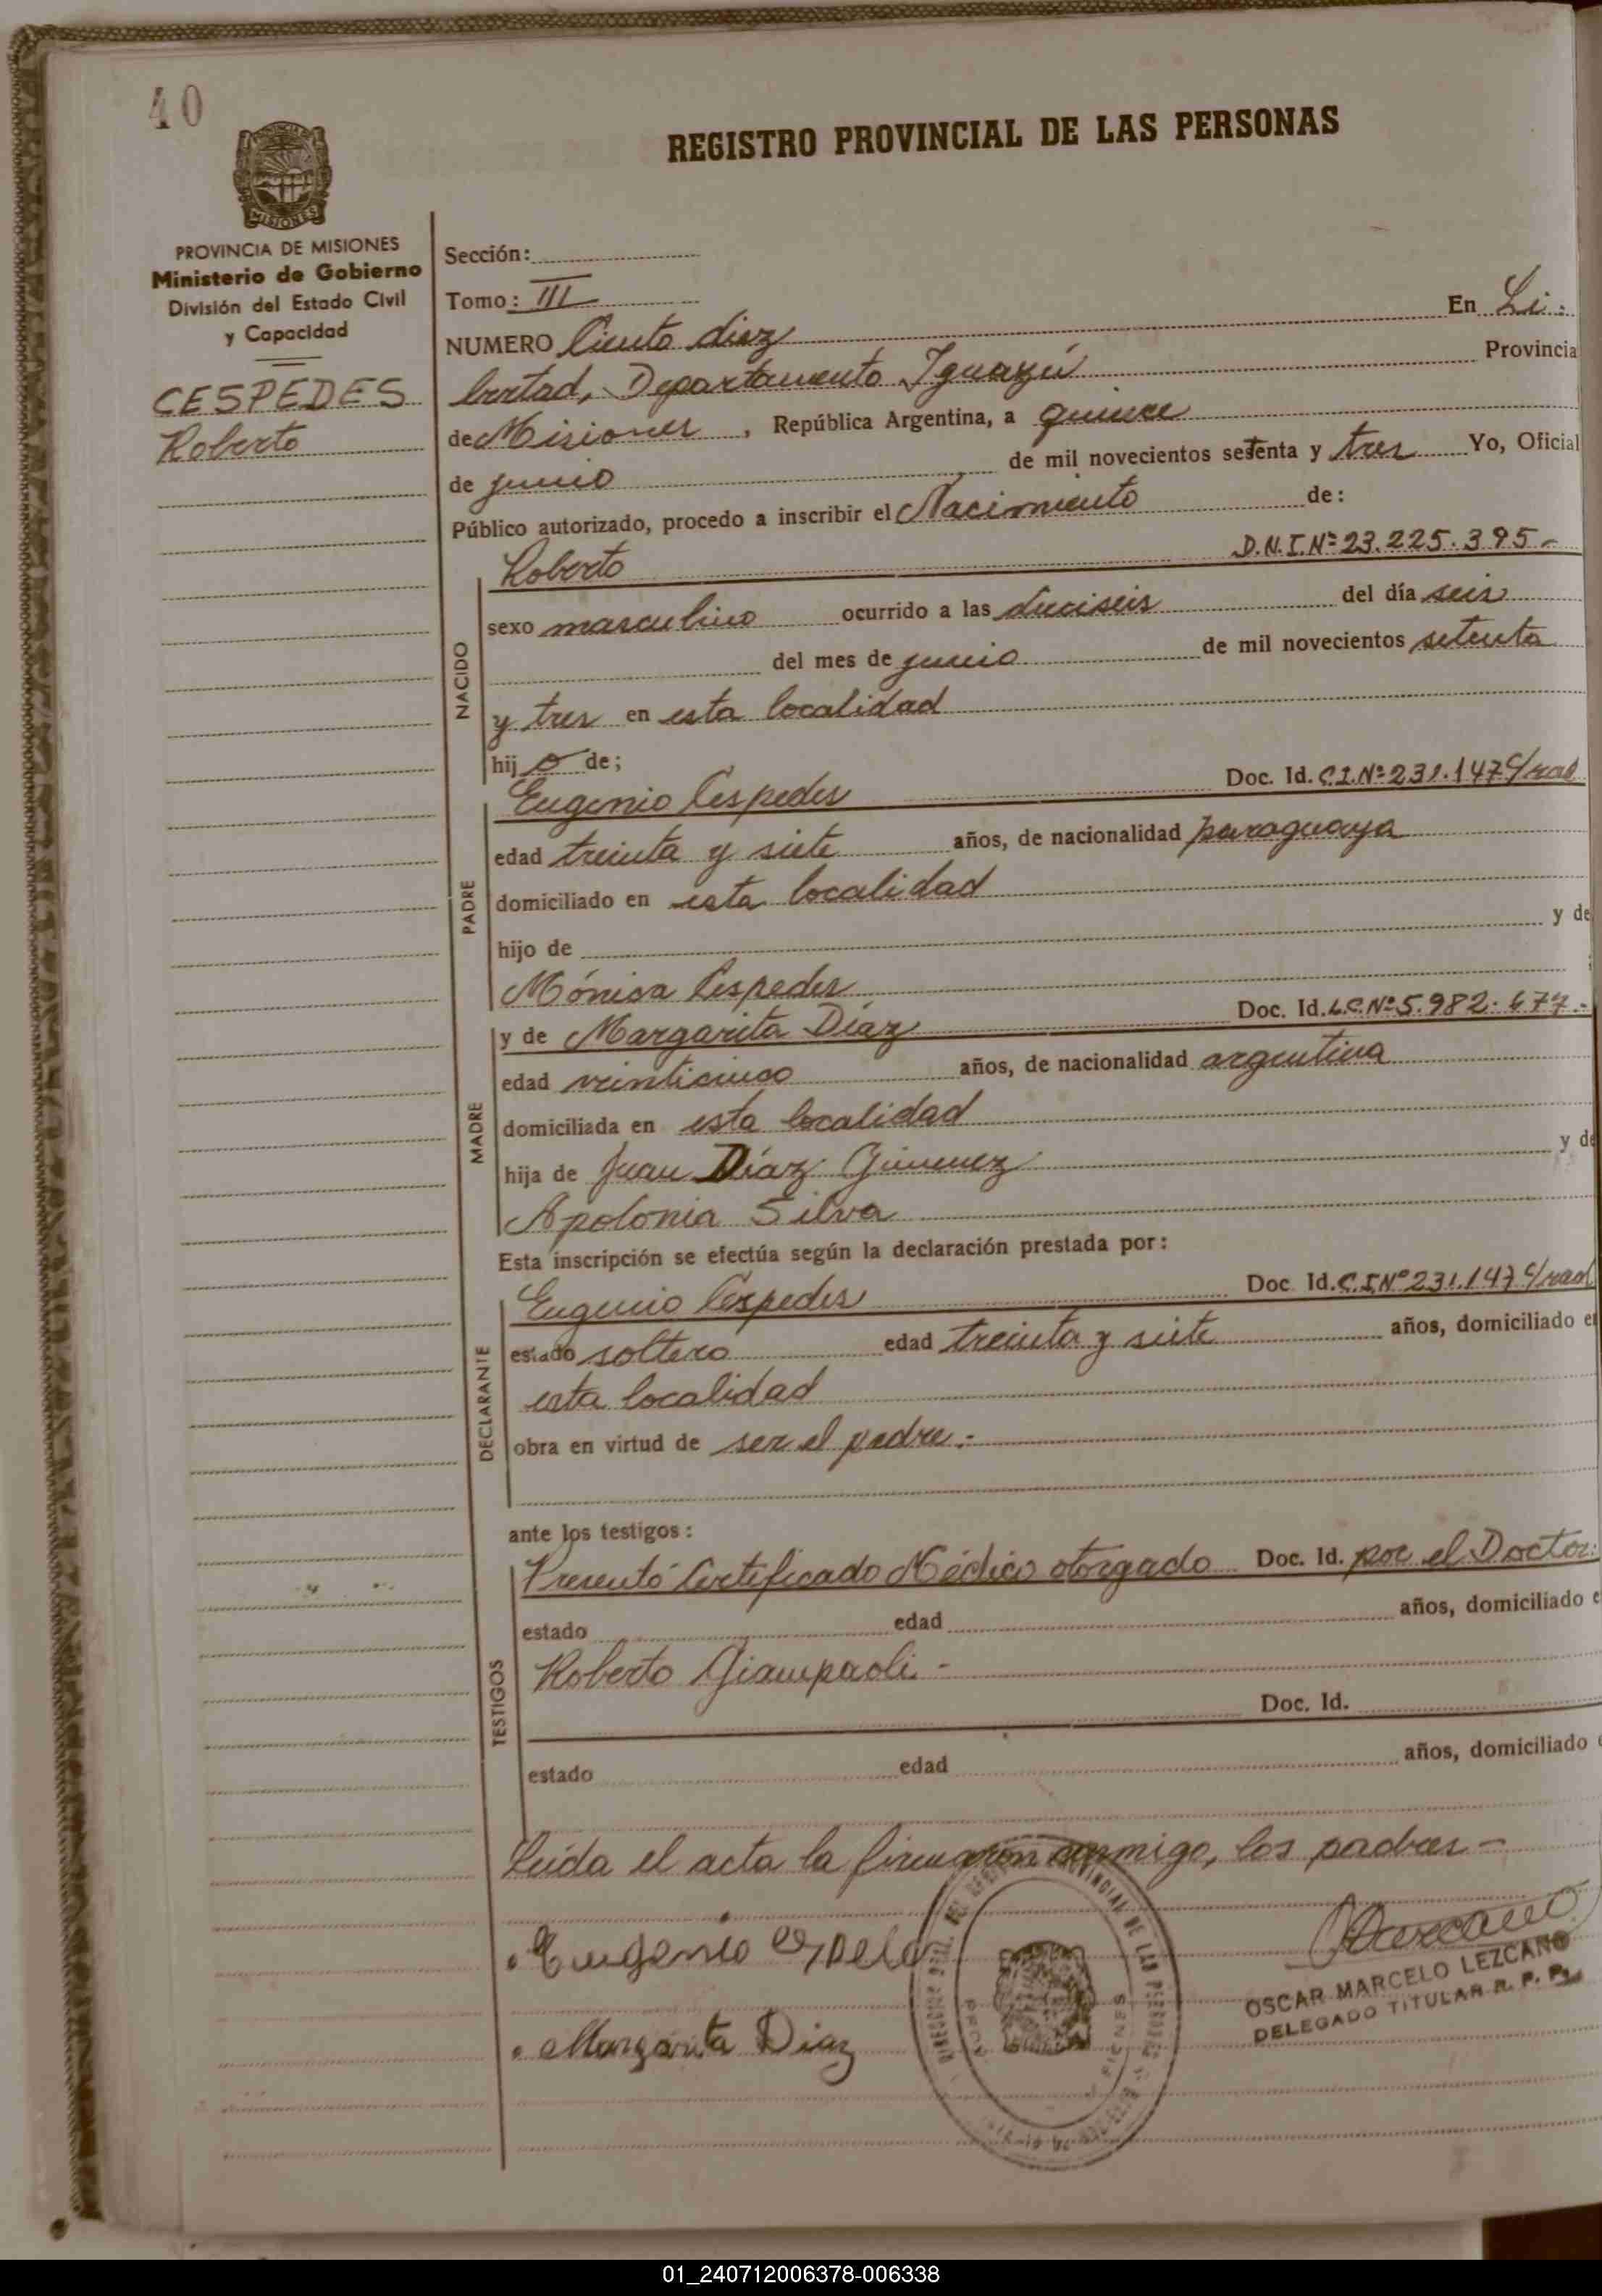 40
REGISTRO PROVINCIAL DE LAS PERSONAS
MISIONES
PROVINCIA DE MISIONES
Ministerio de Gobierno
División del Estado Civil
y Capacidad
CESPEDES
Roberto
Sección:
Tomo: III
NUMERO Ciento diez En Li-
bertad, Departamento Iguazú Provincia
de Misiones, República Argentina, a quince
de junio de mil novecientos setenta y tres Yo, Oficial
Público autorizado, procedo a inscribir el Nacimiento de:
Roberto D.N.I.Nº 23.225.395-
NACIDO
sexo masculino ocurrido a las dieciseis del día seis
del mes de junio de mil novecientos setenta
y tres en esta localidad
hijo de;
Eugenio Cespedes Doc. Id. C.I.Nº 231.147 C/rad
PADRE
edad treinta y siete años, de nacionalidad paraguaya
domiciliado en esta localidad
hijo de y de
Mónica Cespedes
y de Margarita Díaz Doc. Id. L.C.Nº 5.982.677.-
MADRE
edad veinticinco años, de nacionalidad argentina
domiciliada en esta localidad
hija de Juan Díaz Gimenez y de
Apolonia Silva
Esta inscripción se efectúa según la declaración prestada por:
Eugenio Cespedes Doc. Id. C.I.Nº 231.147 C/rad
DECLARANTE
estado soltero edad treinta y siete años, domiciliado en
esta localidad
obra en virtud de ser el padre.-
ante los testigos:
Presentó Certificado Médico otorgado Doc. Id. por el Doctor:
TESTIGOS
estado edad años, domiciliado e
Roberto Giampaoli -
Doc. Id.
estado edad años, domiciliado
Leída el acta la firmaron conmigo, los padres -
Eugenio
Margarita Diaz
OSCAR MARCELO LEZCANO
DELEGADO TITULAR R. P. P.
01_240712006378-006338